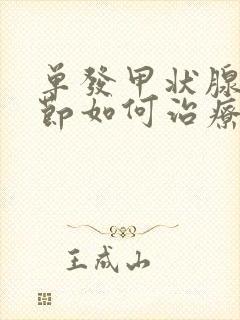 单發甲状腺
節如何治療
王成山